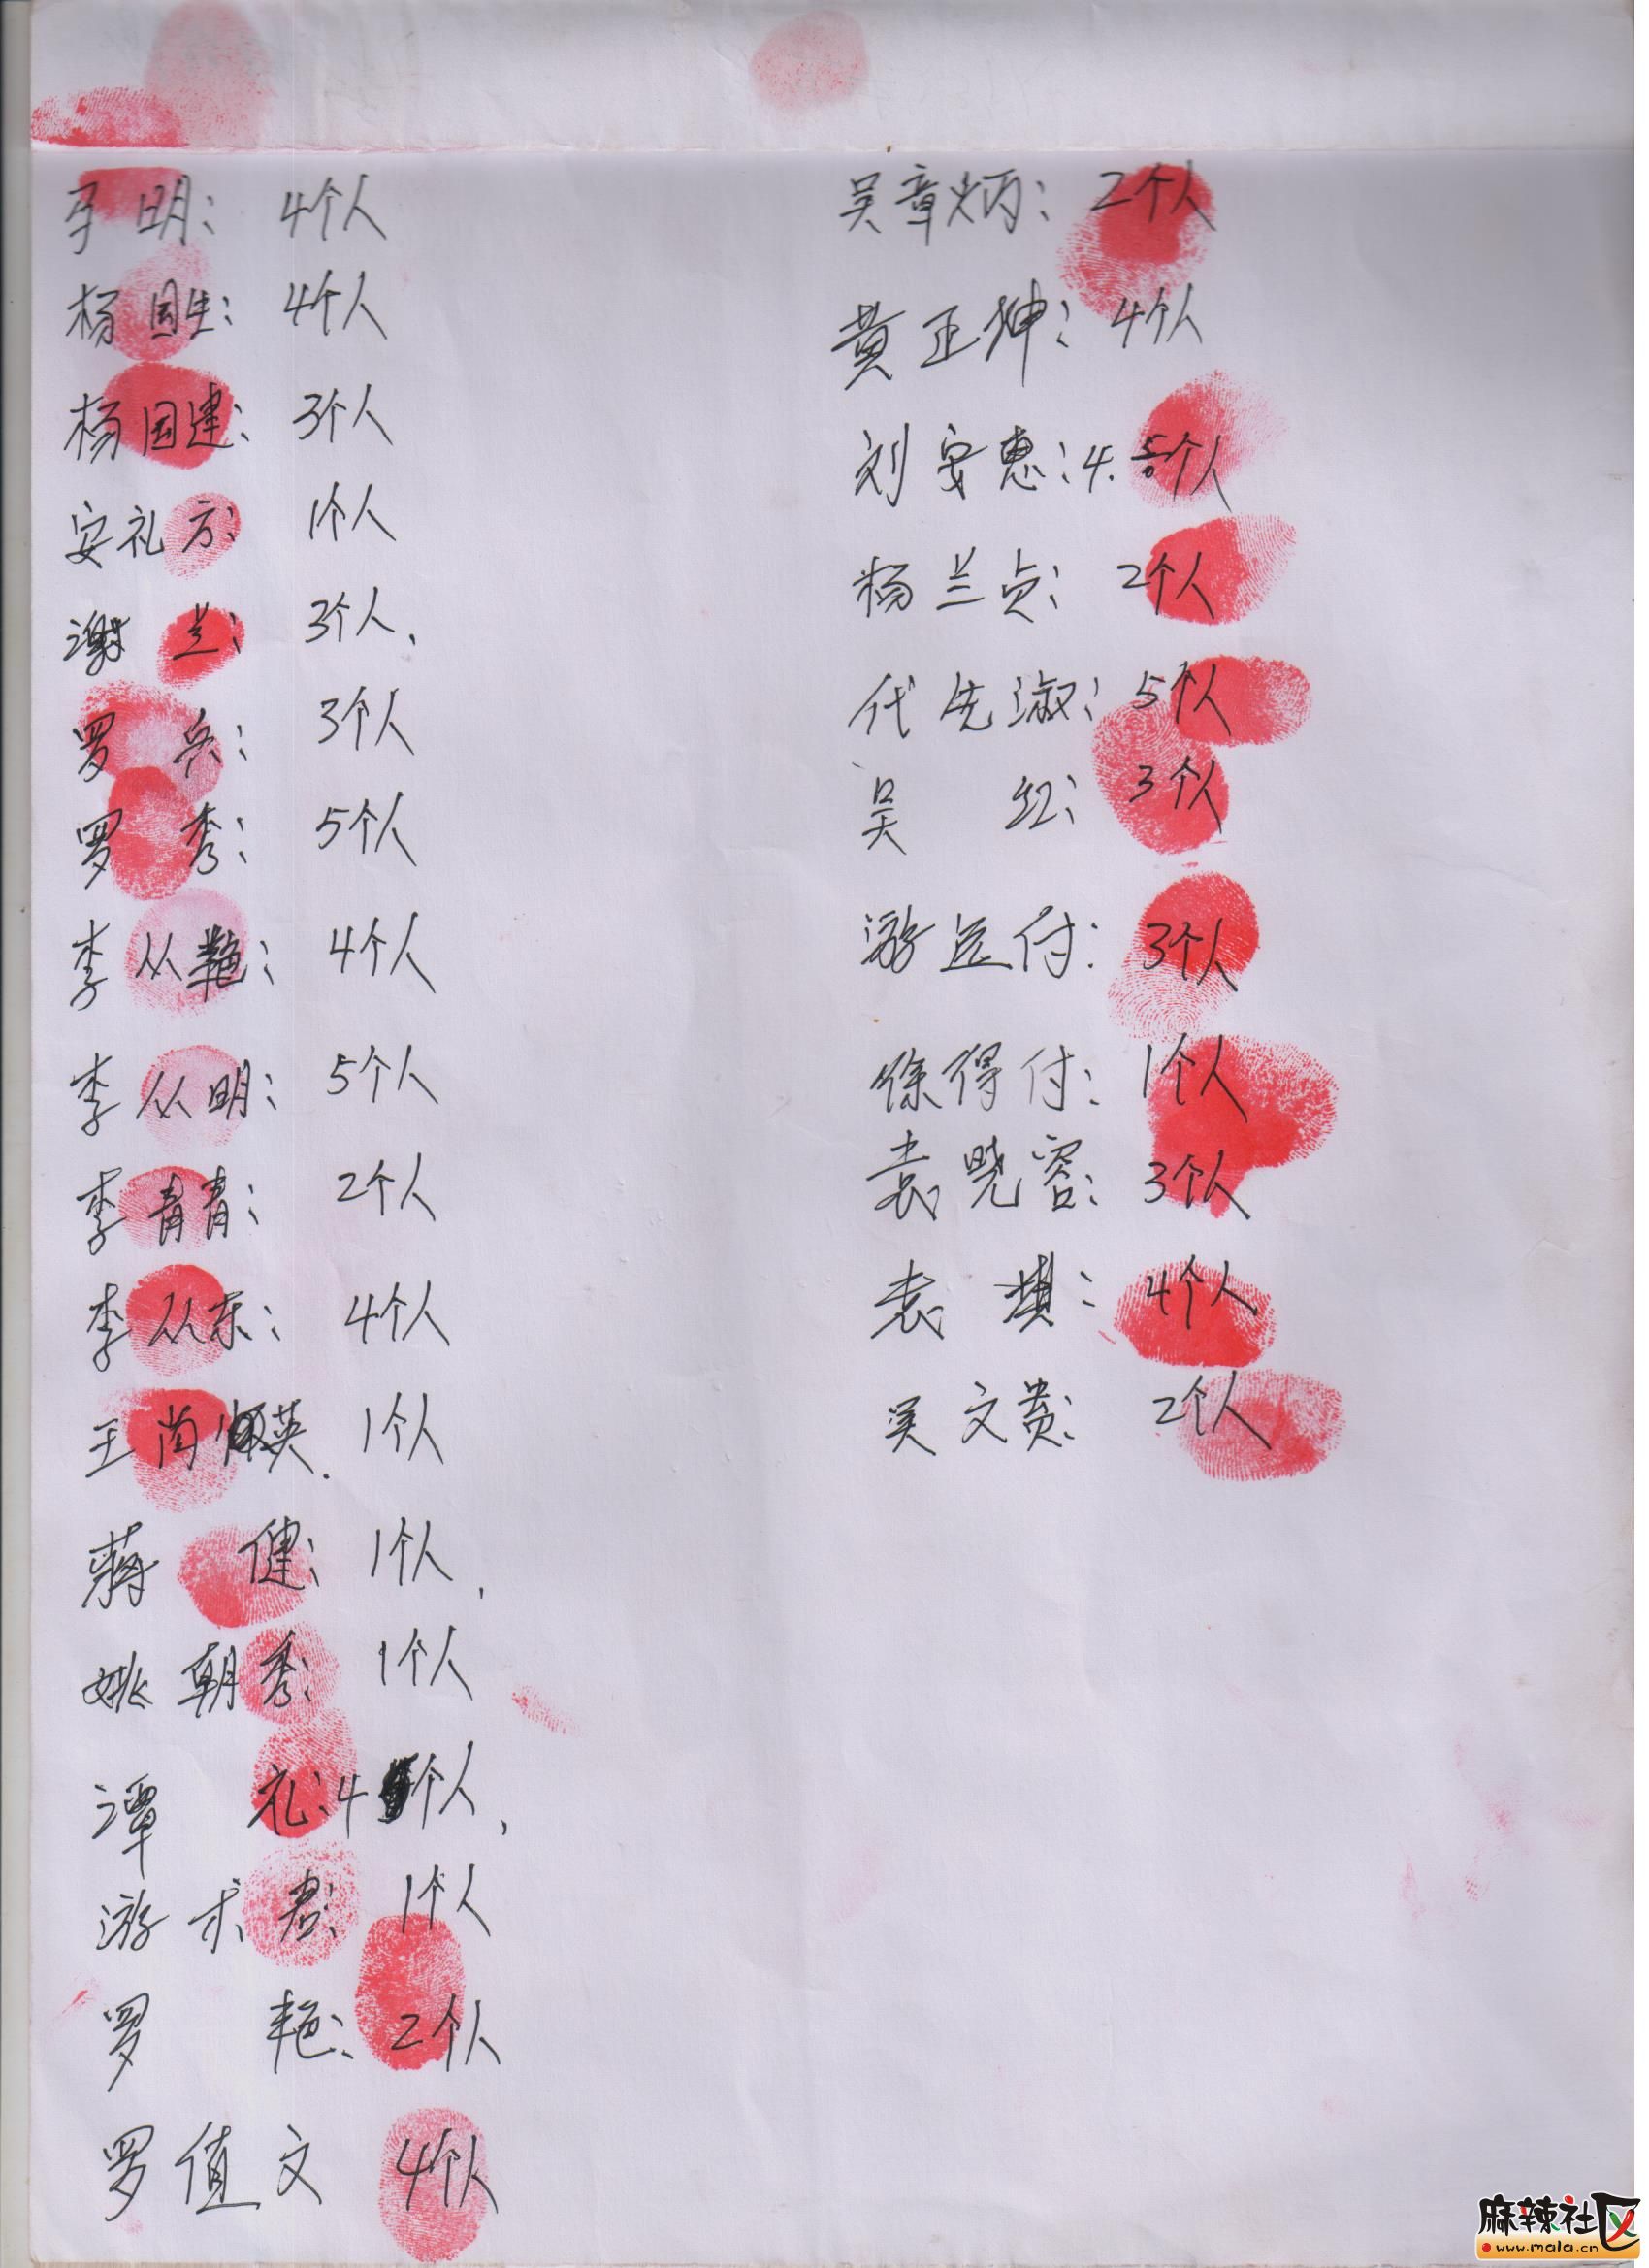 李明: 4个人
杨国生: 4个人
杨国建: 3个人
安礼方: 1个人
谢兰: 3个人.
罗兵: 3个人
罗秀: 5个人
李从艳: 4个人
李从明: 5个人
李青青: 2个人
李从东: 4个人
王尚英. 1个人
蒋健: 1个人.
姚朝秀: 1个人
谭礼: 4个人.
游术君: 1个人
罗艳: 2个人
罗值文 4个人
吴章炳: 2个人
黄正坤: 4个人
刘安惠: 4.5个人
杨兰贞: 2个人
代先淑: 5个人
吴红: 3个人
游运付: 3个人
徐得付: 1个人
袁晓容: 3个人
袁琪: 4个人
吴文贵: 2个人
麻辣社区
www.mala.cn